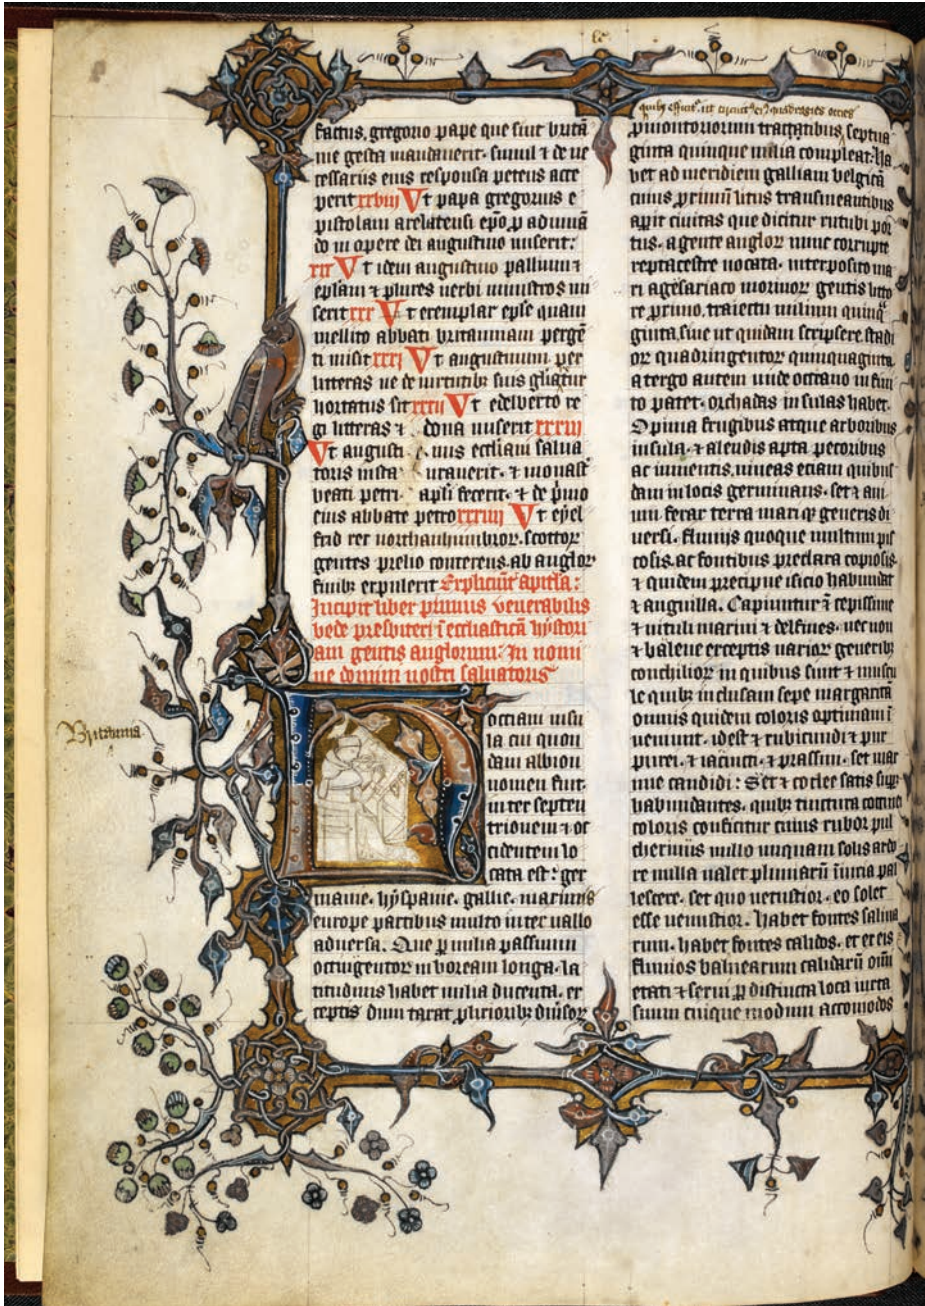 factus, gregorio pape que sint britā
nie gesta mandaverit. simul ⁊ de ne
cessariis eius responsa petens acce
perit xxviii Vt papa gregorius e
pistolam arelatensi ep̄o p̱ adiuuā
do in opere dei augustino miserit:
xxix Vt idem augustino pallium ⁊
ep̄lam ⁊ plures uerbi ministros mi
serit xxx Vt exemplar ep̄le quam
mellito abbati britanniam perge̅
ti misit xxxi Vt augustinum per
litteras ne de uirtutibꝫ suis gl̄iaretur
hortatus sit xxxii Vt edelberto re
gi litteras ⁊ dona miserit xxxiii
Vt augusti nus eccl̄iam salua
toris insta urauerit. ⁊ monast̄
beati petri apl̄i fecerit. ⁊ de p̄mo
eius abbate petro xxxiiii Vt
frid rex northanhumbroꝝ. scottoꝝ
gentes prelio conterens. ab angloꝝ
finibꝫ expulerit Expliciūt capitl̄a:
Incipit liber primus venerabilis
bede presbiteri ī eccl̄iasticā hystori
am gentis anglorum: In nomi
ne domini nostri saluatoris
Britannia.
occiani insu
la cui quon
dam albion
nomen fuit.
inter septen
trionem ⁊ oc
cidentem lo
cata est: ger
manie. hyspanie. gallie. maximis
europe partibus multo inter uallo
aduersa. Que p̱ milia passuum
octingentoꝝ in boream longa. la
titudinis habet milia ducenta. ex
ceptis dum taxat ꝓlixioribꝫ diu̅soꝝ
quibꝫ efficitꝰ. ut circuitꝰ eiꝰ quadragies octies
ꝓmontoriorum tractatibus, septua
ginta quinque milia compleat. Ha
bet ad meridiem galliam belgicā
cuius p̄rimū litus transmeantibus
ap̱it ciuitas que dicitur rutubi por
tus. a gente angloꝝ nunc corrupte
reptacestre uocata. interposito ma
ri agesariaco morinoꝝ gentis litto
re p̄rimo, traiectu milium quinq̄
ginta, siue ut quidam scripsere, stadi
oꝝ quadringentoꝝ quinquaginta
a tergo autem unde occeano infini
to patet. orchadas insulas habet.
Opima frugibus atque arboribus
insula. ⁊ alendis apta pecoribus
ac iumentis, uineas etiam quibus
dam in locis germinans. set ⁊ aui
um ferax terra mariqꝫ generis di
uersi. fluuijs quoque multum pis
cosis. ac fontibus preclara copiosis.
⁊ quidem precipue isicio habundat
⁊ anguilla. Capiuntur ⁊ sepissime
⁊ uituli marini ⁊ delfines. nec non
⁊ balene exceptis uarioꝝ generibꝫ
conchilioꝝ in quibus sunt ⁊ muscu
le quibꝫ inclusam sepe margaritā
omnis quidem coloris optimam ī
ueniunt. id est ⁊ rubicundi ⁊ pur
purei. ⁊ iacincti. ⁊ prassini. set mar
ime candidi: Set ⁊ coclee satis supꝑ
habundantes. quibꝫ tinctura coccinei
coloris conficitur cuius rubor pul
cherimus nullo unquam solis ardo
re nulla ualet pluuiarū iniuria pal
lescere. set quo uetustior. eo solet
esse uenustior. Habet fontes salina
rum. habet fontes calidos. et ex eis
fluuios balnearum calidarū om̄i
etati ⁊ sexui p̱ distincta loca iuxta
suum cuique modum accomodos